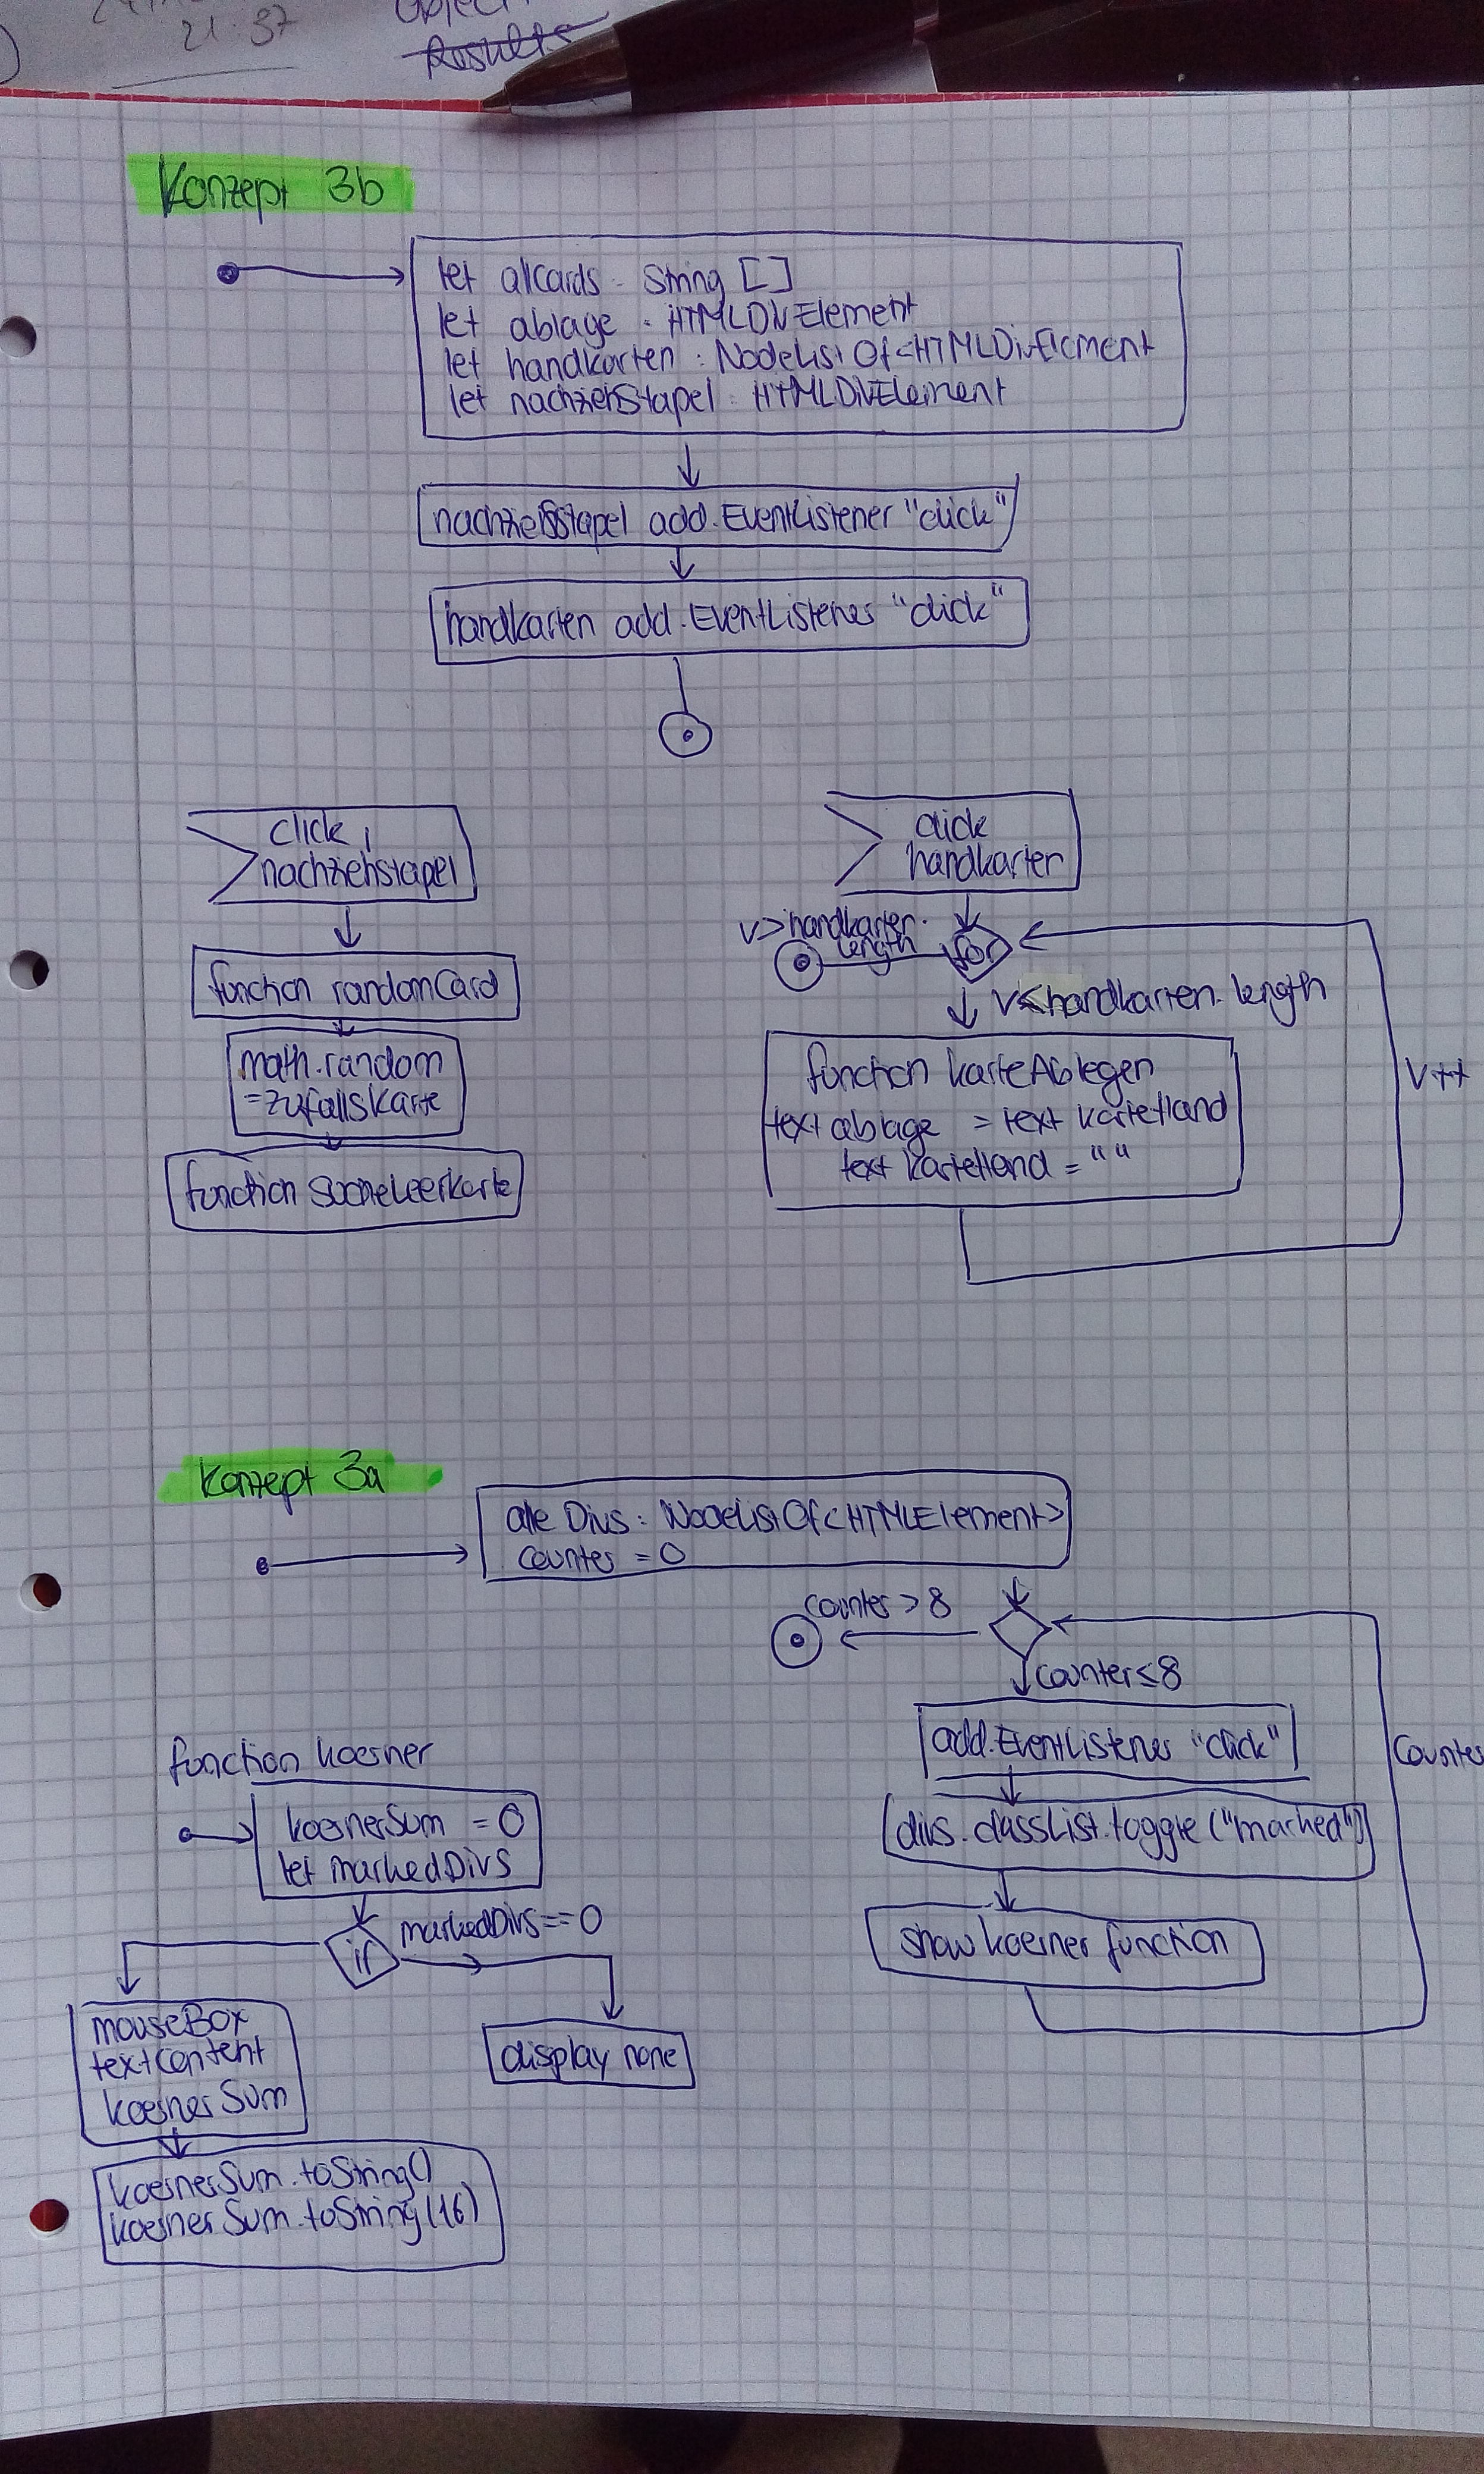 21:37
Results
Konzept 3b
let allCards : String []
let ablage : HTMLDivElement
let handkarten : NodeListOf<HTMLDivElement
let nachziehStapel : HTMLDivElement
nachziehStapel add.EventListener "click"
handkarten add.EventListener "click"
click,
nachziehstapel
function randomCard
math.random
=zufallsKarte
function sucheLeerKarte
click
handkarten
v>handkarten.
length
for
v<handkarten.length
function karteAblegen
text ablage = text karteHand
text karteHand = ""
v++
Konzept 3a
alle Divs : NodeListOf<HTMLElement>
counter = 0
counter > 8
counter≤8
add.EventListener "click"
divs.classList.toggle("marked")
show koerner function
Counter
function koerner
koernerSum = 0
let markedDivs
if
markedDivs==0
mouseBox
textContent
koernerSum
display none
koernerSum.toString()
koernerSum.toString(16)